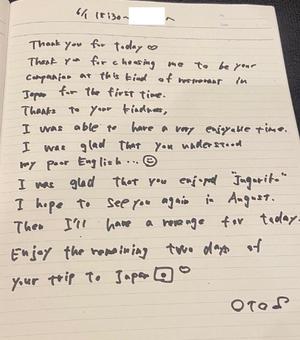 6/1 18:30~
Thank you for today
Thank you for choosing me to be your
companion at this kind of restaurant in
Japan for the first time.
Thanks to your kindness,
I was able to have a very enjoyable time.
I was glad that you understood
my poor English... ☺
I was glad that you enjoyed "Jagariko"
I hope to see you again in August.
Then I'll have a revenge for today.
Enjoy the remaining two days of
your trip to Japan